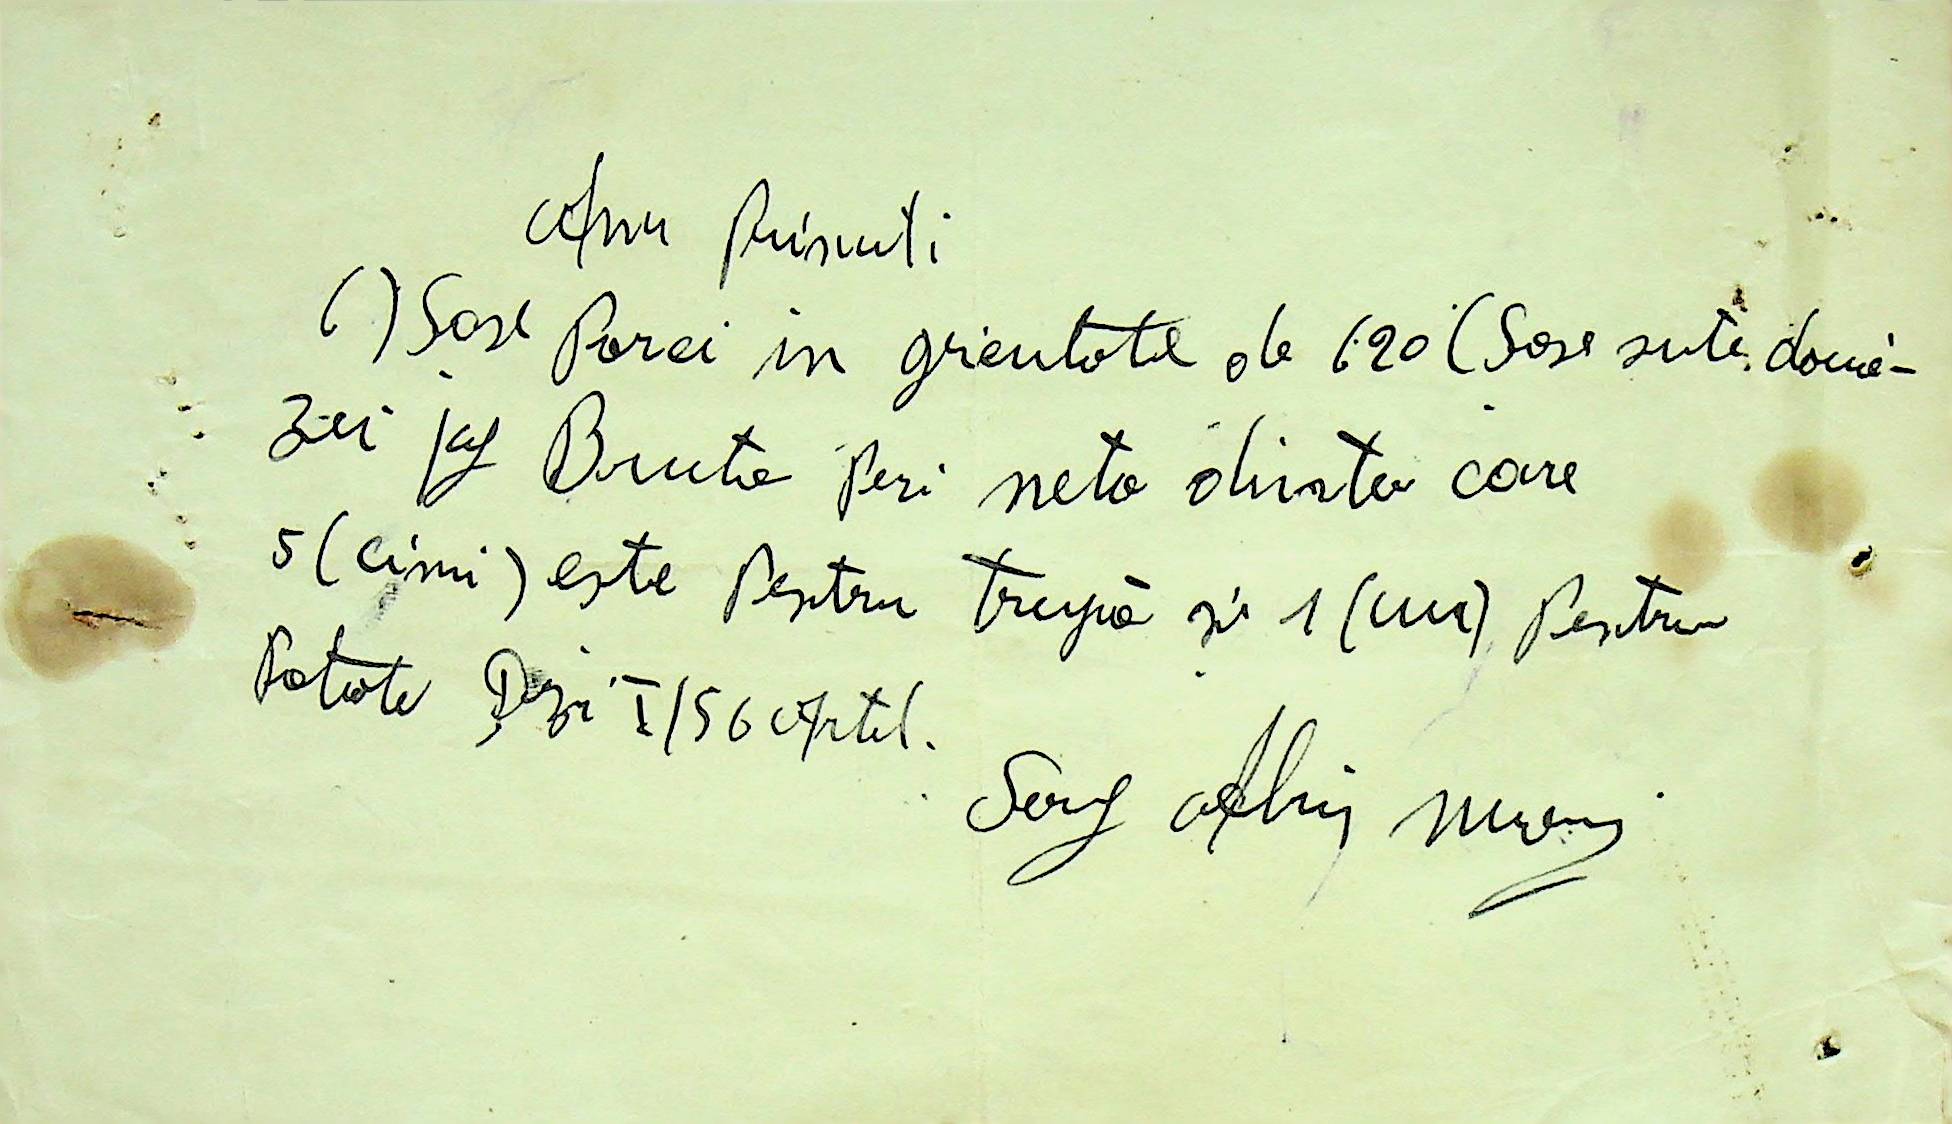 Am primiti
6) Sase Porci in grientote de 620 (Sase sute doua-
zeci kg Bruto Peri neto dinter care
5 (cinni) este Pentru trupă si 1 (unu) Pentru
Potrote Regi I/56 Artel.
Serg Albu